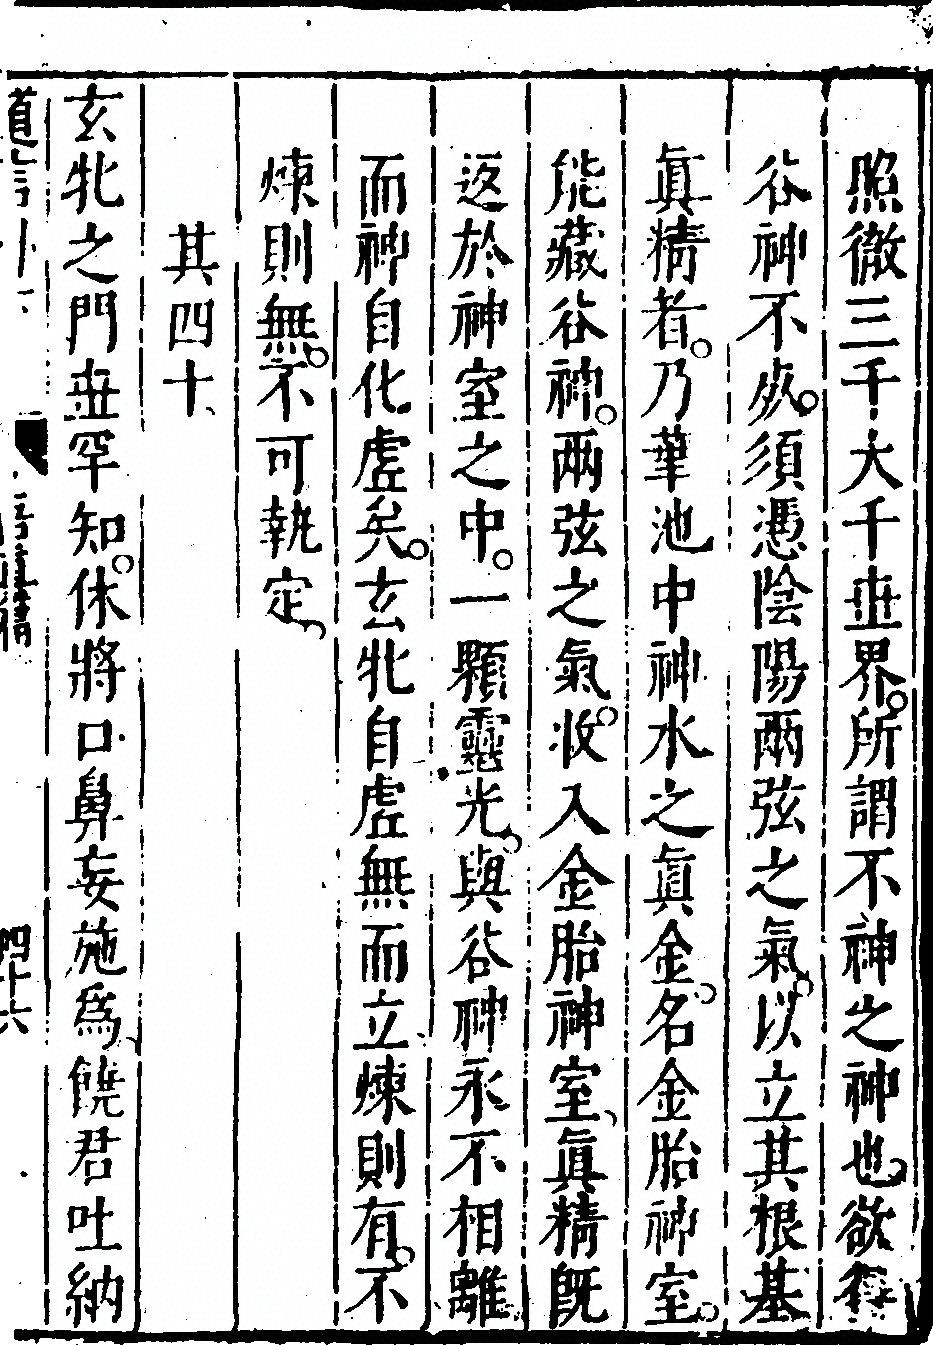 照徹三千大千世界。所謂不神之神也、欲得
谷神不死。須憑陰陽兩弦之氣、以立其根基
眞精者。乃華池中神水之眞金、名金胎神室。
能藏谷神。兩弦之氣。收入金胎神室、眞精旣
返於神室之中。一顆靈光、與谷神永不相離
而神自化虛矣。玄牝自虛無而立煉則有。不
煉則無。不可執定、
其四十
玄牝之門世罕知。休將口鼻妄施爲、饒君吐納
四十六